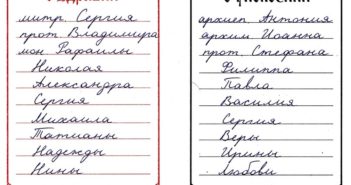 митр. Сергия
прот. Владимира
мон. Рафаилы
Николая
Александра
Сергия
Михаила
Татианы
Надежды
Нины
архиеп. Антония
архим. Иоанна
прот. Стефана
Филиппа
Павла
Василия
Сергия
Веры
Ирины
Любови